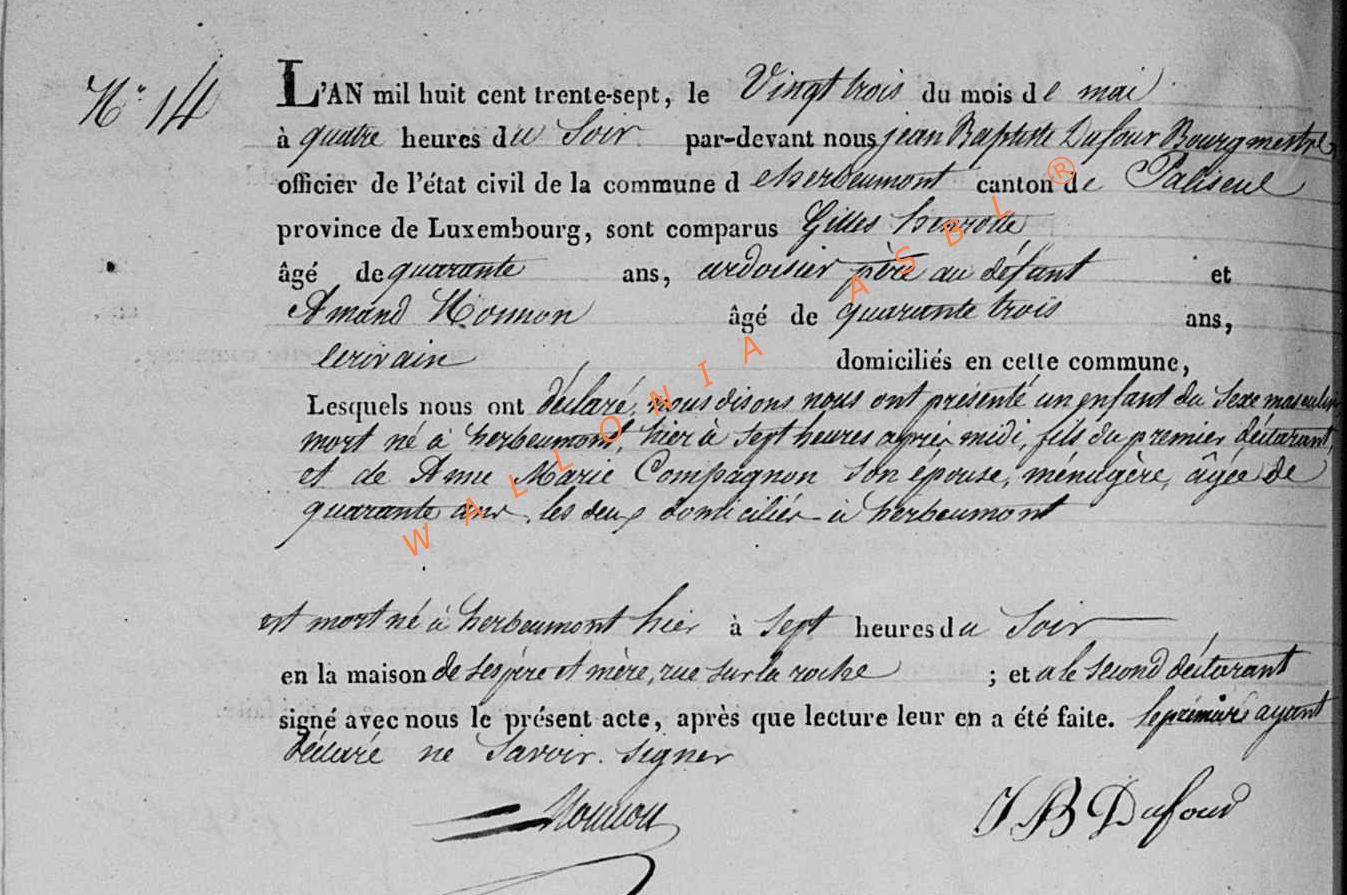 N° 14
L'AN mil huit cent trente-sept, le Vingt trois du mois de mai
à quatre heures du Soir par-devant nous jean Baptiste Dufour Bourgmestre,
officier de l'état civil de la commune d'herbeumont canton de Paliseul
province de Luxembourg, sont comparus Gilles henrotte
âgé de quarante ans, ardoisier père au défant et
Amand Nounon âgé de quarante trois ans,
écrivain domiciliés en cette commune,
Lesquels nous ont déclaré, nous disons nous ont présenté un enfant du Sexe masculin
mort né à herbeumont, hier à sept heures après midi, fils du premier déclarant,
et de Anne Marie Compagnon Son épouse, ménagère, âgée de
quarante ans, les deux domiciliés à herbeumont
est mort né à herbeumont hier à Sept heures du Soir
en la maison de ses père et mère, rue sur la roche ; et a le second déclarant
signé avec nous le présent acte, après que lecture leur en a été faite. le premier ayant
déclaré ne Savoir Signer
Nounon
J B Dufour
WALLONIA ASBL ®